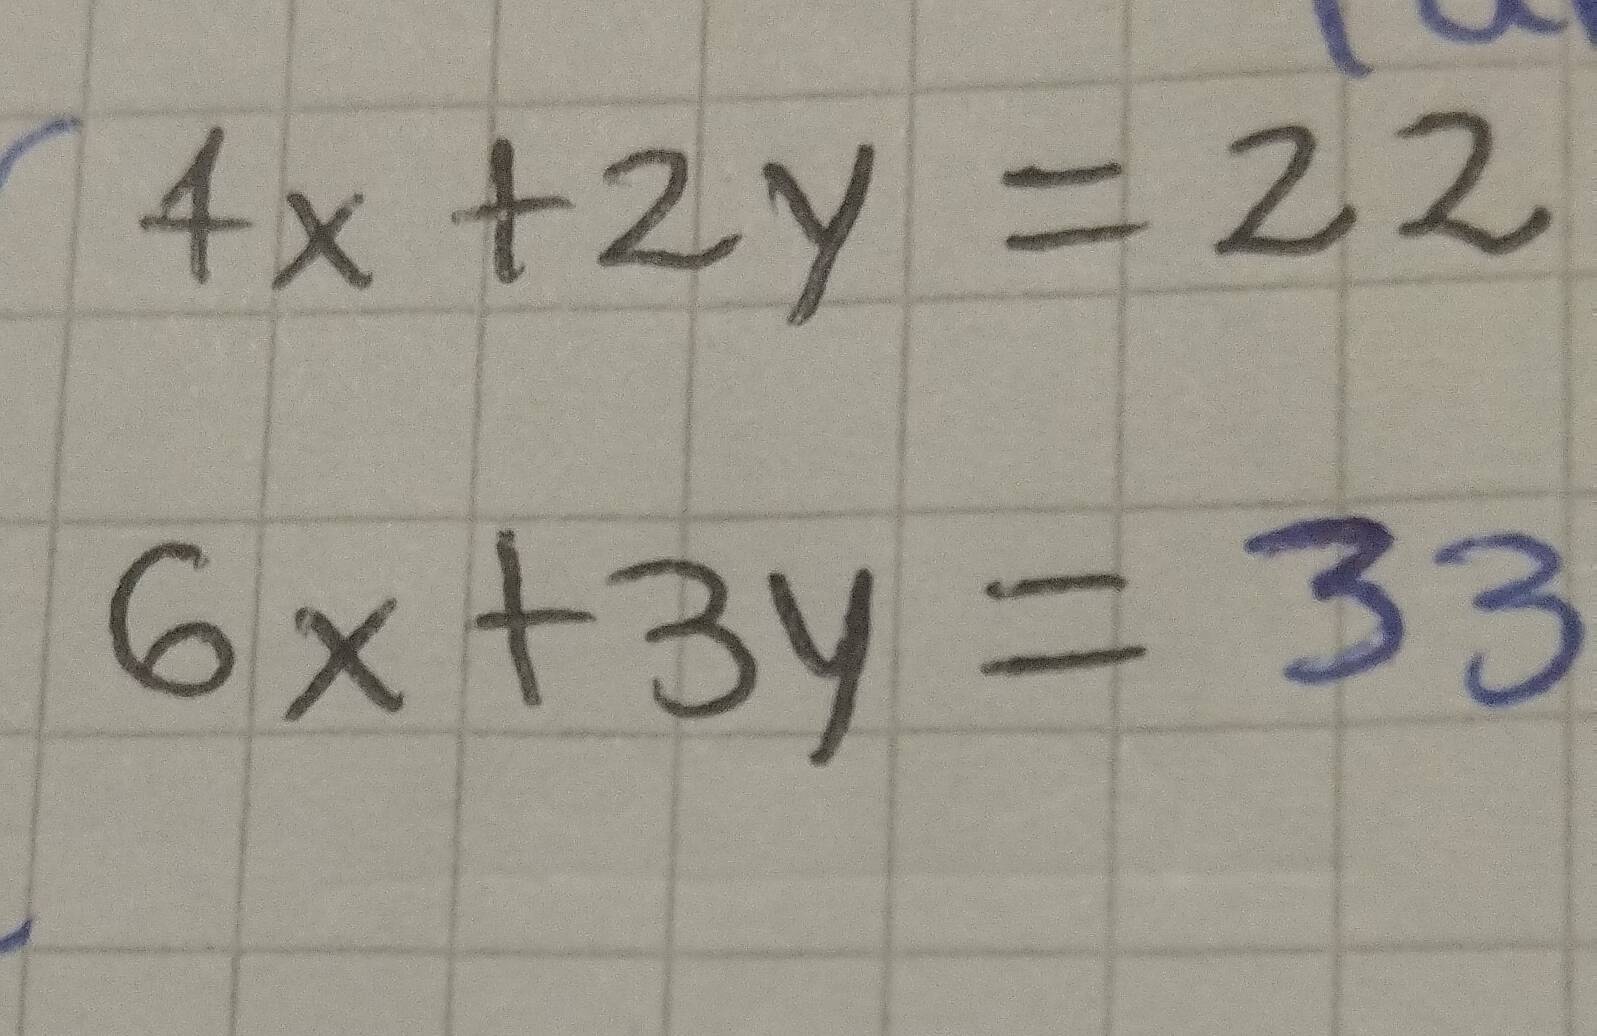 4x + 2y = 22
6x + 3y = 33